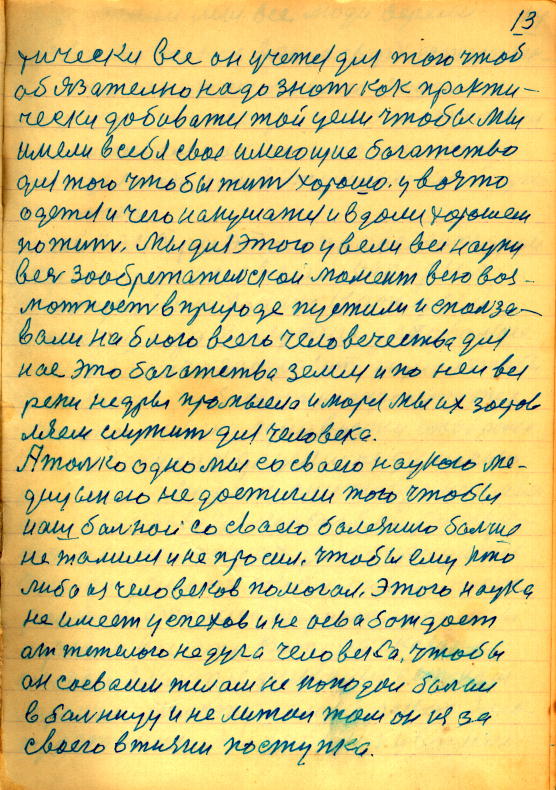 13
тически все он учется для того чтоб
обязателно надо знат как практи-
чески добиватся той цели чтобы мы
имели в себя свое имеющие богатство
для того чтобы жит хорошо. у воято
одется и чего накушатся и в доли хорошем
пожит. Мы для этого увели вся науки
вея зообретателской момент всю воз-
можност в природе пустили испол за-
вали на блого всего человечества для
нас это богатства земля и по ней вся
реки недры промысла и моря мы их застов
ляем служит для человека.
А толко одно мы со своего наукою ме-
дицыною не достигли того чтобы
наш балной со своего болезнию балше
не жалился и не просил. чтобы ему кто
либо из человеков помогал. Этого наука
не имеет успехов и не освабождает
от тежелого недуга человека, чтобы
он со своим телом не поподал балше
в балницу и не лижал там он из за
своего в жизни поступка.